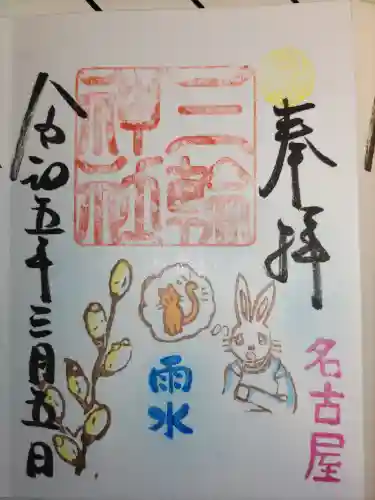 奉拝
三輪
神社
名古屋
雨水
令和五年三月五日